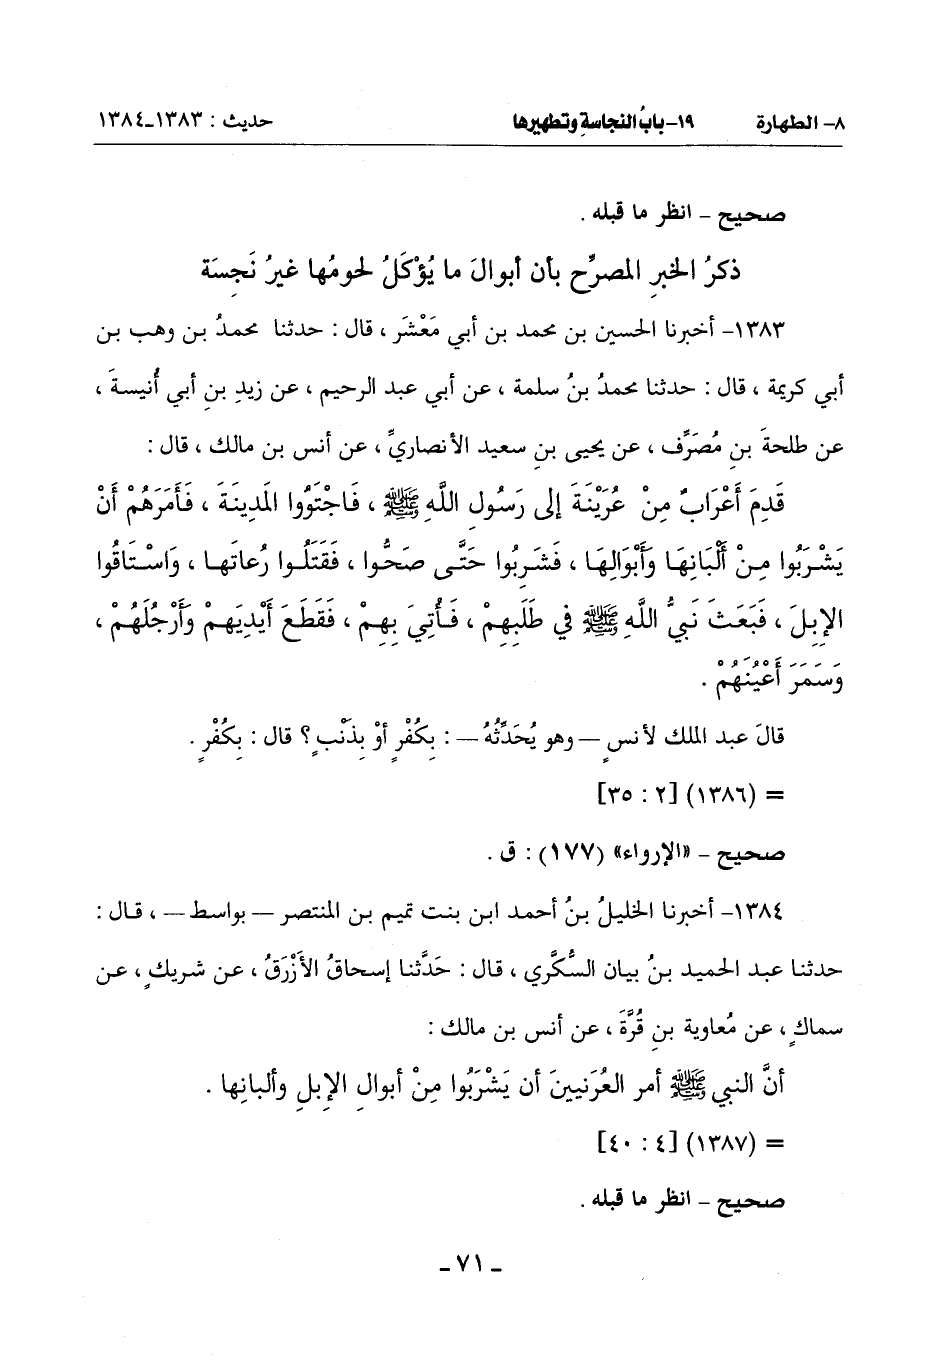 ٨- الطهارة ١٩- بابُ النجاسةِ وتطهيرها حديث : ١٣٨٣-١٣٨٤
صحيح - انظر ما قبله .
ذكرُ الخبرِ المصرِّح بأن أبوالَ ما يُؤْكَلُ لحومُها غيرُ نَجِسَة
١٣٨٣- أخبرنا الحسين بن محمد بن أبي مَعْشَر ، قال : حدثنا محمدُ بن وهب بن
أبي كريمة ، قال : حدثنا محمدُ بنُ سلمة ، عن أبي عبد الرحيم ، عن زيدِ بنِ أبي أُنيسةَ ،
عن طلحةَ بنِ مُصَرِّف ، عن يحيى بنِ سعيد الأنصاريِّ ، عن أنس بن مالك ، قال :
قَدِمَ أَعْرَابٌ مِنْ عُرَيْنَةَ إلى رَسُولِ اللَّهِ ﷺ ، فَاجْتَوُوا المَدِينَةَ ، فَأَمَرَهُمْ أَنْ
يَشْرَبُوا مِنْ أَلْبَانِهَا وَأَبْوَالِهَا ، فَشَرِبُوا حَتَّى صَحُّوا ، فَقَتَلُوا رُعاتَها ، وَاسْتَاقُوا
الإِبِلَ ، فَبَعَثَ نَبِيُّ اللَّهِ ﷺ في طَلَبِهِمْ ، فَأُتِيَ بِهِمْ ، فَقَطَعَ أَيْدِيَهِمْ وَأَرْجُلَهُمْ ،
وَسَمَرَ أَعْيُنَهُمْ .
قالَ عبد الملك لأنسٍ — وهو يُحَدِّثُهُ — : بِكُفْرٍ أوْ بِذَنْبٍ ؟ قال : بِكُفْرٍ .
= (١٣٨٦) [٢ : ٣٥]
صحيح - «الإرواء» (١٧٧) : ق .
١٣٨٤- أخبرنا الخليلُ بنُ أحمد ابن بنت تميم بن المنتصر — بواسط — ، قال :
حدثنا عبد الحميد بنُ بيان السُّكَّري ، قال : حَدَّثنا إسحاقُ الأزْرَقُ ، عن شريكٍ ، عن
سماكٍ ، عن مُعاوية بنِ قُرَّةَ ، عن أنس بن مالك :
أنَّ النبي ﷺ أمر العُرَنيينَ أن يَشْرَبُوا مِنْ أبوالِ الإبلِ وألبانِها .
= (١٣٨٧) [٤ : ٤٠]
صحيح - انظر ما قبله .
- ٧١ -